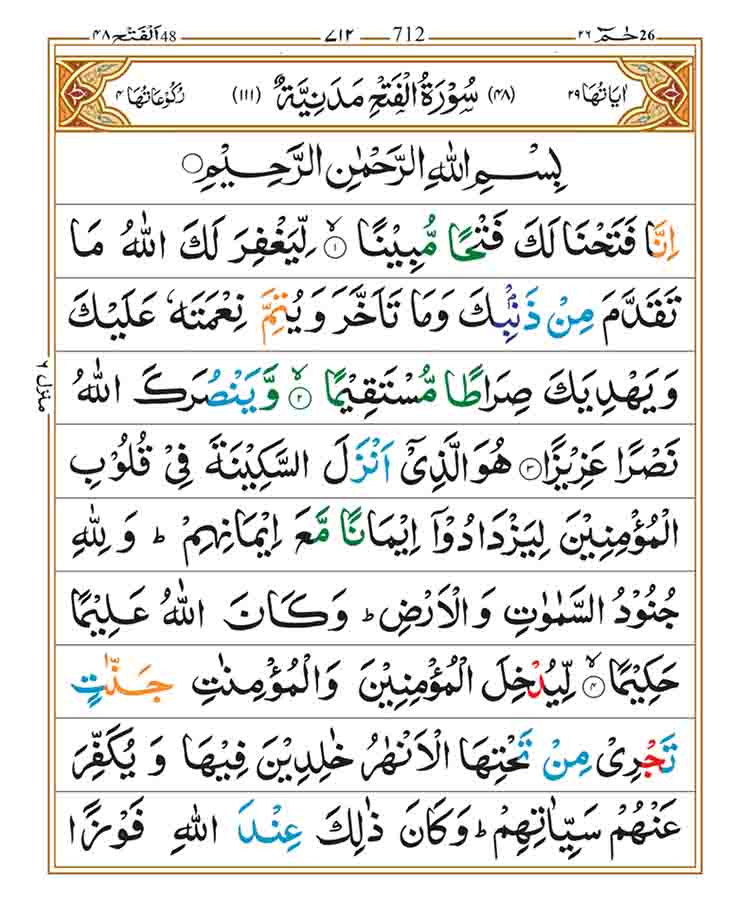 حٰمٓ 26 ٢٦ 712 ٧١٢ اَلْفَتْح 48 ٤٨
اٰيَاتُهَا ٢٩ (٤٨) سُوْرَةُ الْفَتْحِ مَدَنِيَّةٌ (١١١) رُكُوْعَاتُهَا ٤
بِسْمِ اللهِ الرَّحْمٰنِ الرَّحِيْمِ ○
اِنَّا فَتَحْنَا لَكَ فَتْحًا مُّبِيْنًا ۙ ١ لِّيَغْفِرَ لَكَ اللهُ مَا
تَقَدَّمَ مِنْ ذَنْۢبِكَ وَمَا تَاَخَّرَ وَيُتِمَّ نِعْمَتَهٗ عَلَيْكَ
وَيَهْدِيَكَ صِرَاطًا مُّسْتَقِيْمًا ۙ ٢ وَّيَنْصُرَكَ اللهُ
نَصْرًا عَزِيْزًا ٣ هُوَ الَّذِيْٓ اَنْزَلَ السَّكِيْنَةَ فِيْ قُلُوْبِ
الْمُؤْمِنِيْنَ لِيَزْدَادُوْٓا اِيْمَانًا مَّعَ اِيْمَانِهِمْ ؕ وَلِلّٰهِ
جُنُوْدُ السَّمٰوٰتِ وَالْاَرْضِ ؕ وَكَانَ اللهُ عَلِيْمًا
حَكِيْمًا ۙ ٤ لِّيُدْخِلَ الْمُؤْمِنِيْنَ وَالْمُؤْمِنٰتِ جَنّٰتٍ
تَجْرِيْ مِنْ تَحْتِهَا الْاَنْهٰرُ خٰلِدِيْنَ فِيْهَا وَيُكَفِّرَ
عَنْهُمْ سَيِّاٰتِهِمْ ؕ وَكَانَ ذٰلِكَ عِنْدَ اللهِ فَوْزًا
منزل ٦